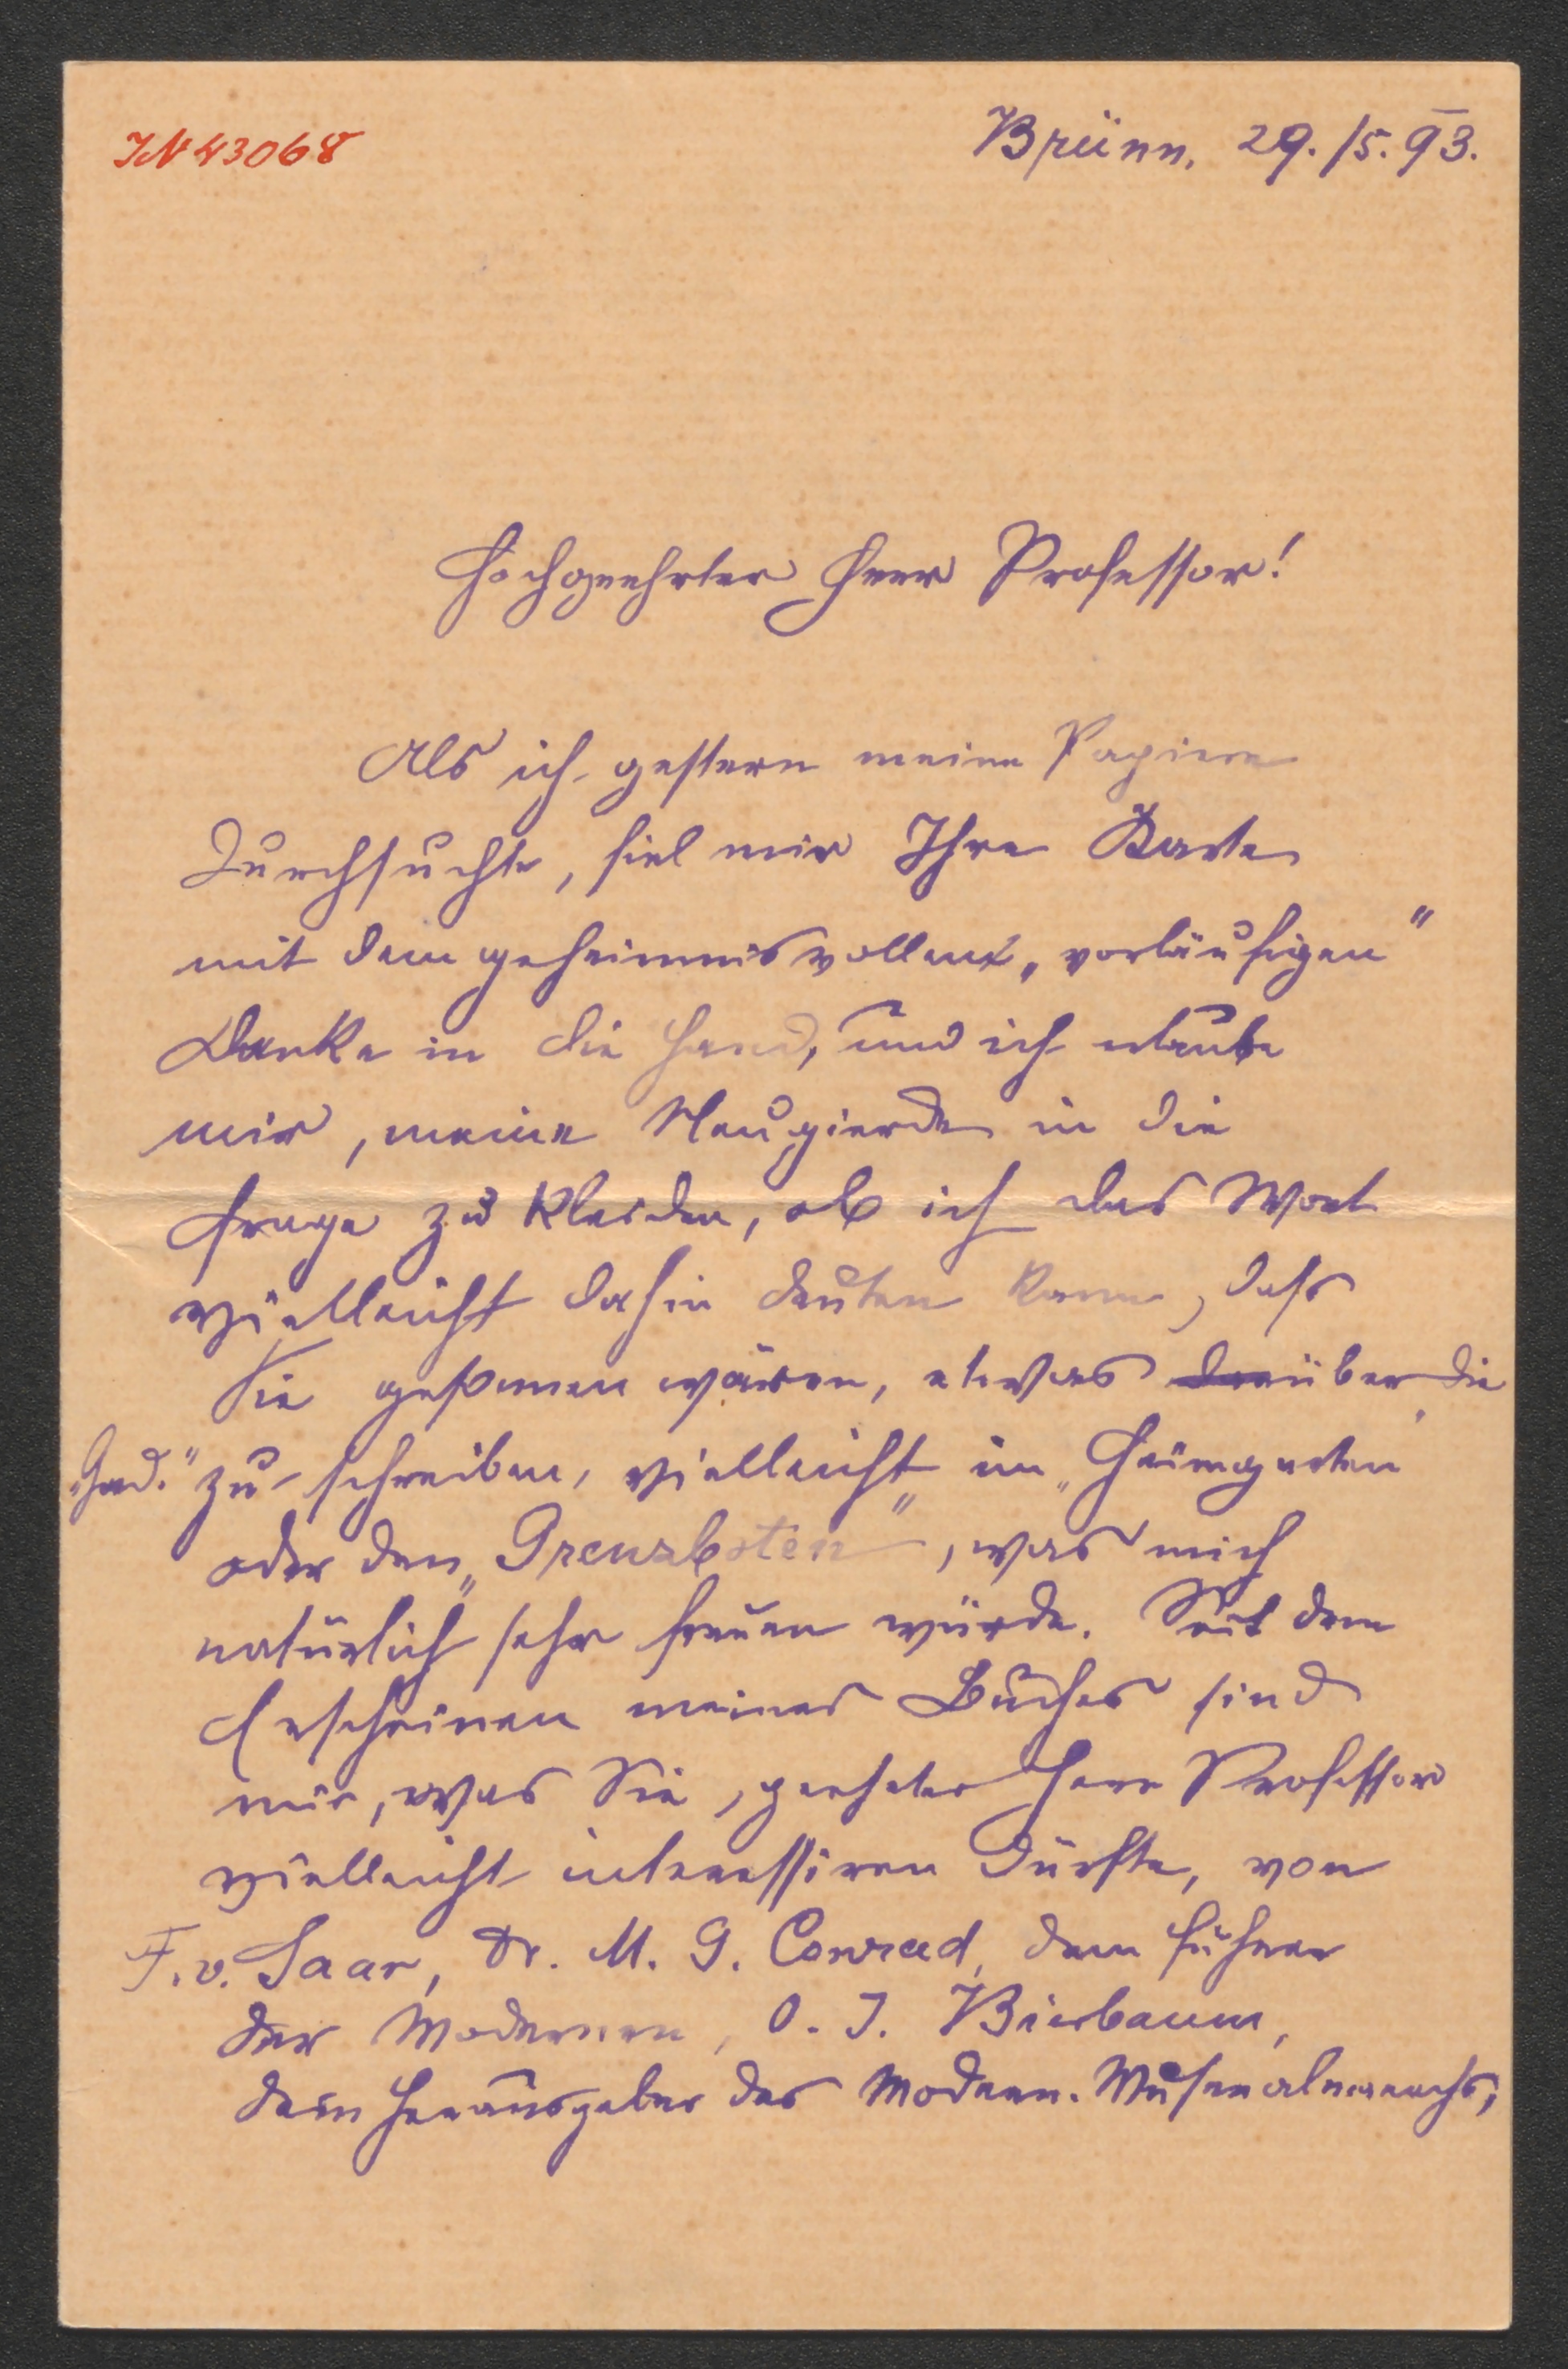 IN 43068
Brünn, 29./5. 93.
Hochgeehrter Herr Professor!
Als ich gestern meine Papiere
durchsuchte, fiel mir Ihre Karte
mit dem geheimnisvollen „vorläufigen“
Danke in die Hand, und ich erlaube
mir, meine Neugierde in die
Frage zu kleiden, ob ich das Wort
vielleicht dahin deuten kann, dass
Sie gesonnen wären, etwas über die
„Ged.“ zu schreiben, vielleicht im „Heimgarten“
oder den „Grenzboten“, was mich
natürlich sehr freuen würde. Seit dem
Erscheinen meines Buches sind
mir, was Sie, geehrter Herr Professor
vielleicht interessiren dürfte, von
F. v. Saar, Dr. M. G. Conrad, dem Führer
der Modernen, O. J. Bierbaum,
dem Herausgeber des Modern. Musenalmanachs,